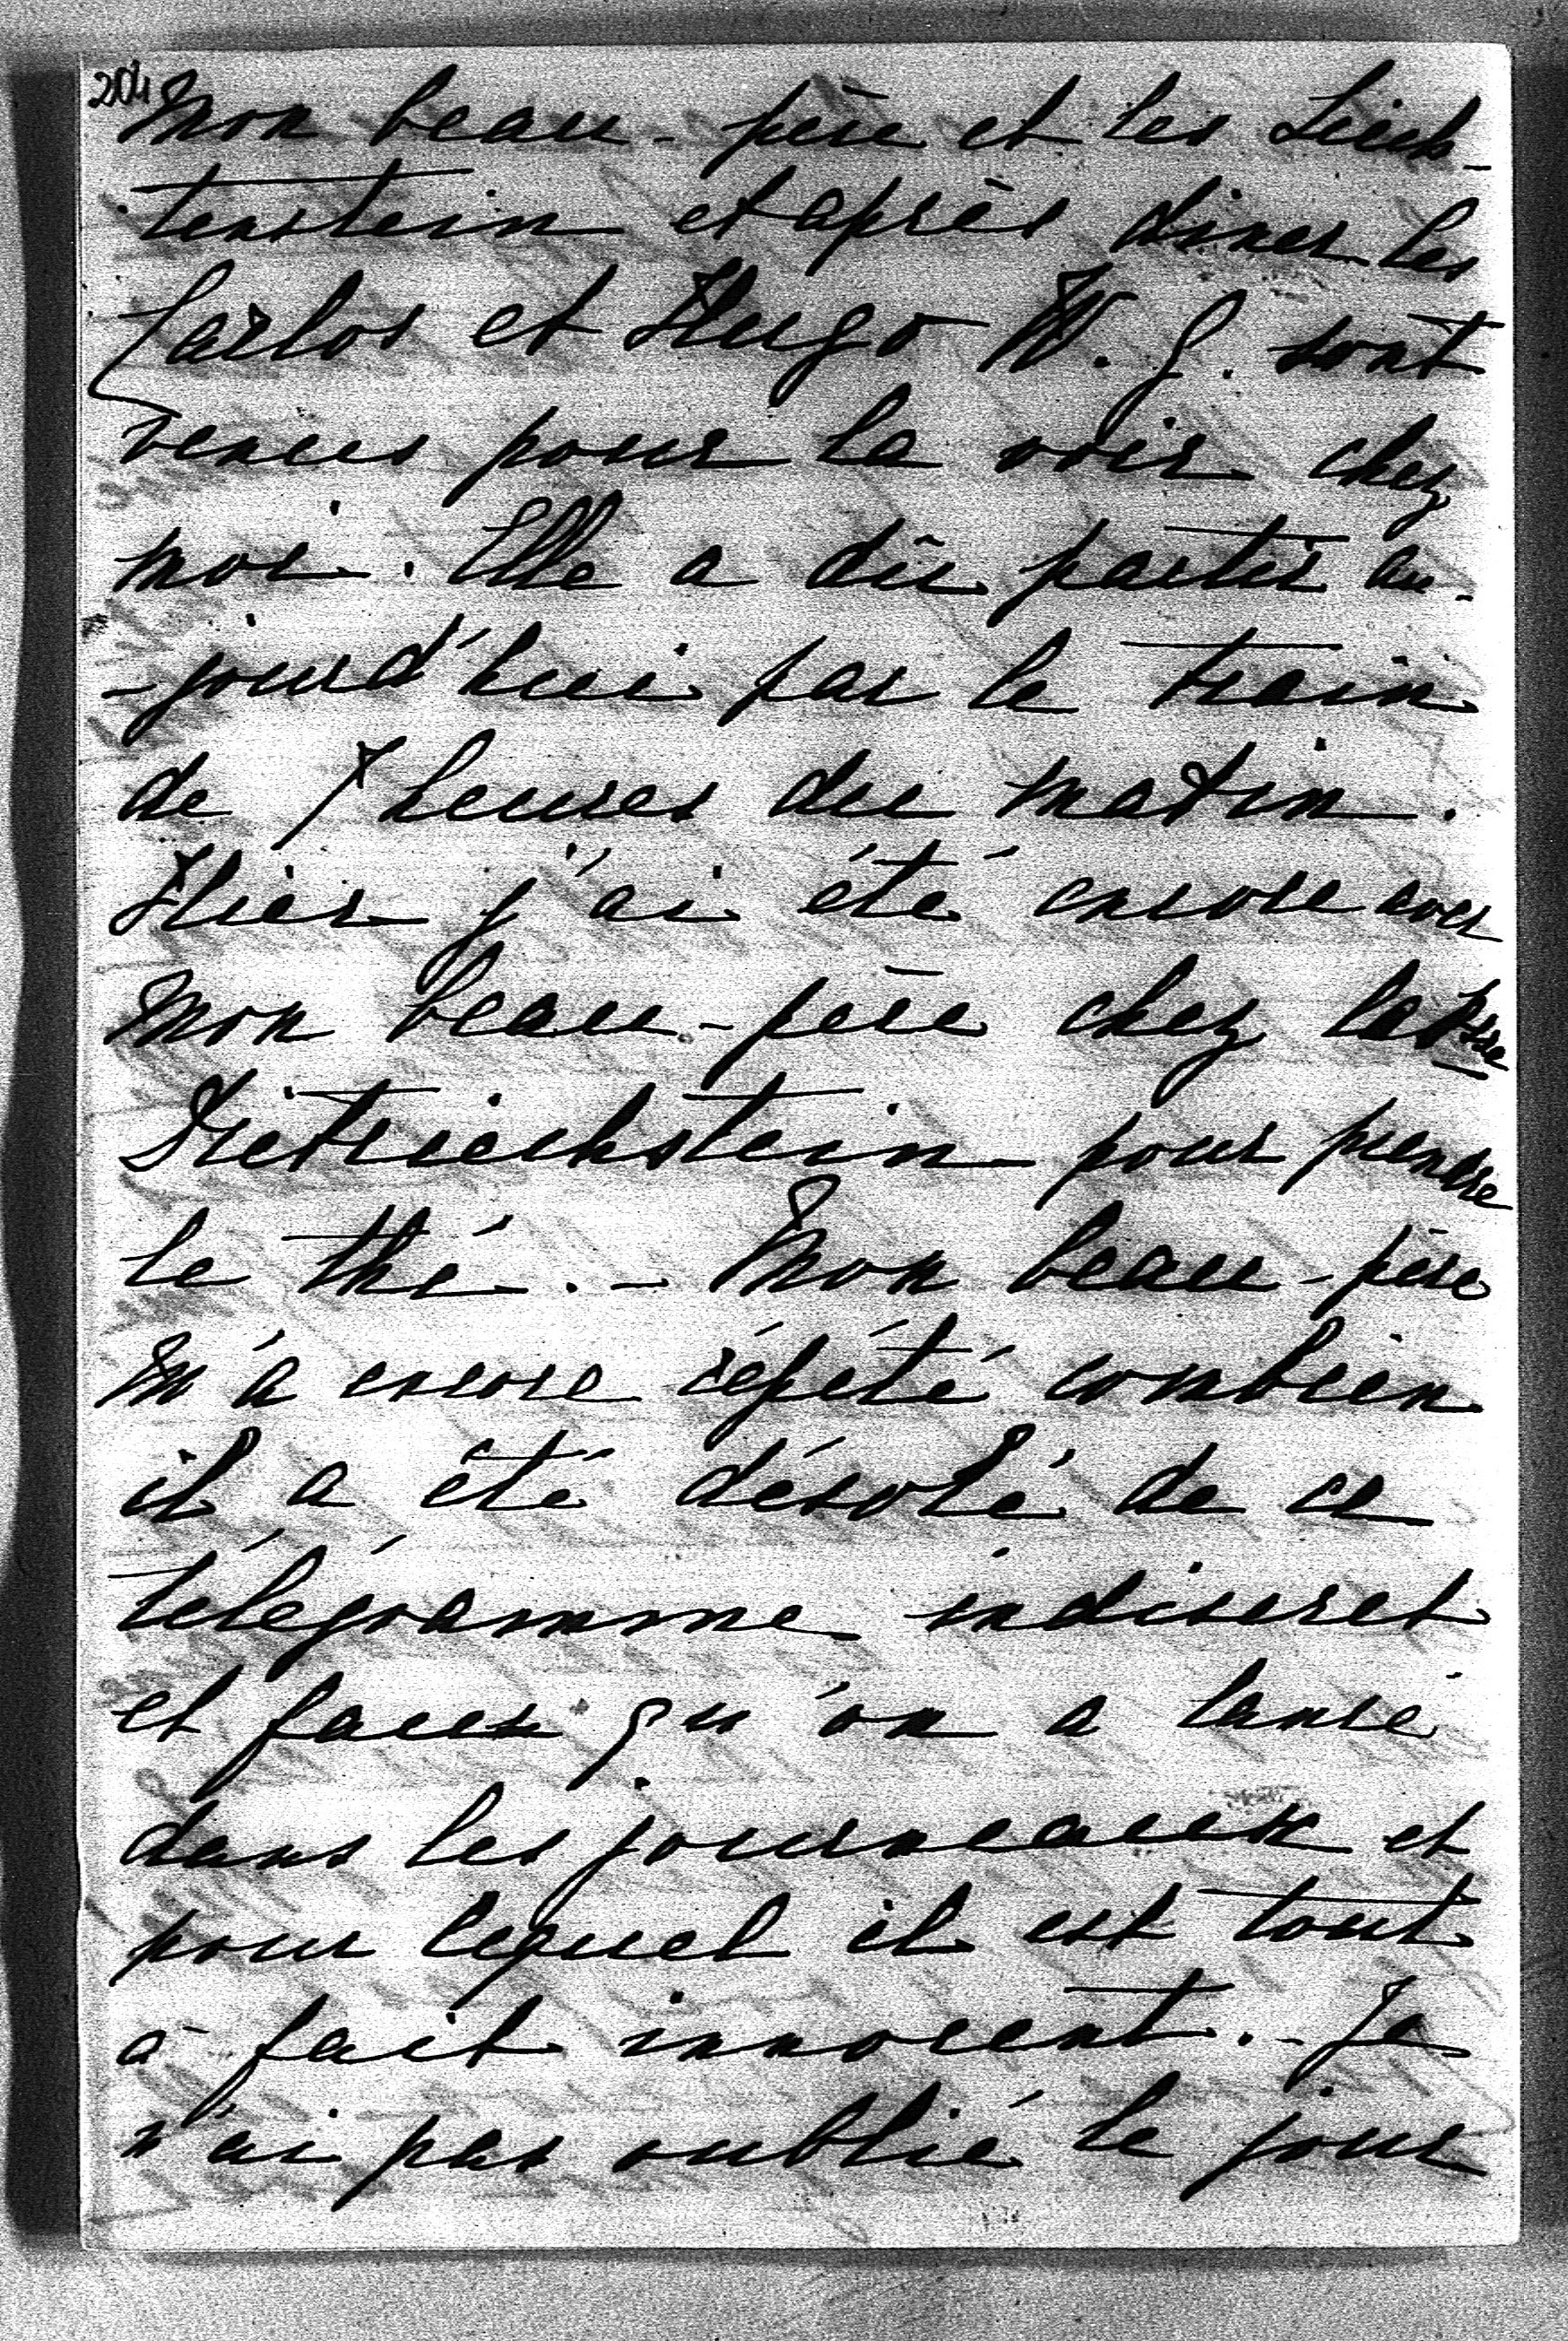 204
Mon beau-père et les Liech-
tenstein et après diner les
Carlos et Hugo W. G. sont
venus pour la voir chez
moi. Elle a dû partir au-
-jourd'hui par le train
de 7 heures du matin.
Hier j'ai été encore avec
mon beau-père chez la Psse
Dietrichstein pour prendre
le thé. - Mon beau-père
m'a encore répété combien
il a été désolé de ce
télégramme indiscret
et faux qu'on a lancé
dans les journeaux et
pour lequel il est tout
à fait innocent. - Je
n'ai pas oublié le jour